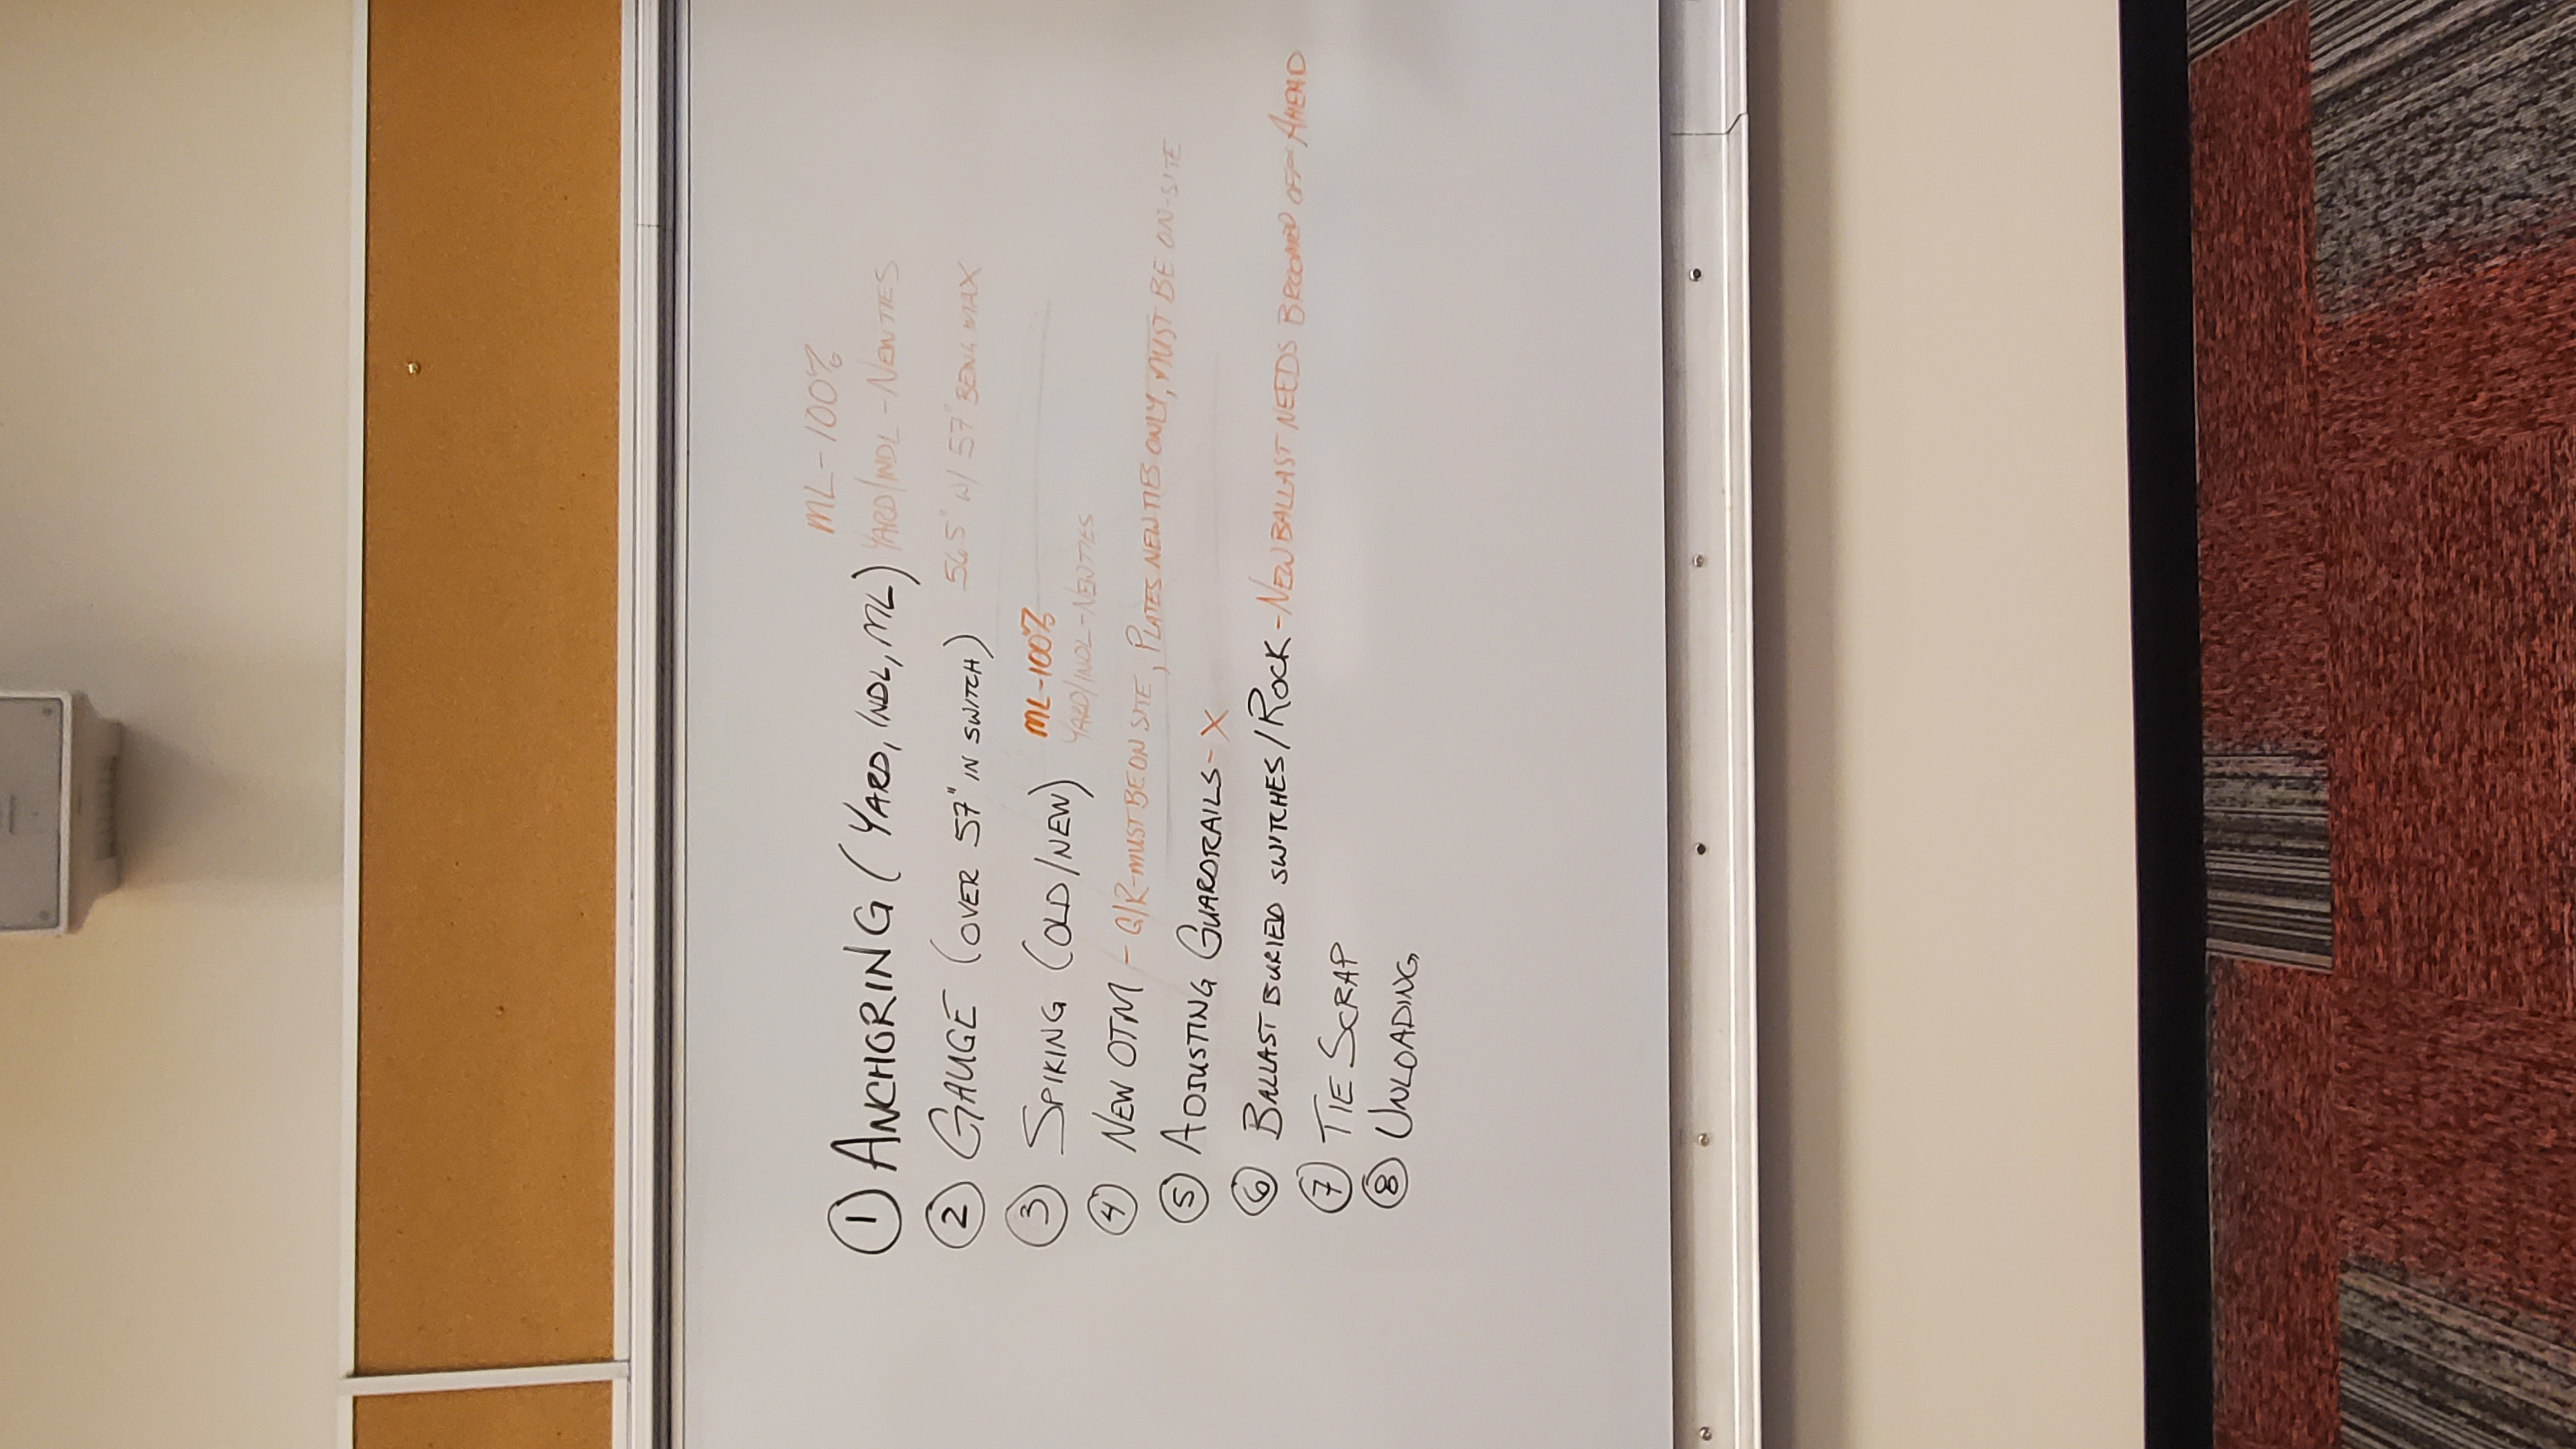 ML-100%
① ANCHORING (YARD, INDL, ML) YARD/INDL-NEW TIES
② GAUGE (OVER 57" IN SWITCH) 56.5" W/ 57" BEING MAX
ML-100%
③ SPIKING (OLD/NEW) YARD/INDL-NEW TIES
④ NEW OTM - G/R-MUST BE ON SITE, PLATES NEW TIES ONLY, MUST BE ON-SITE
⑤ ADJUSTING GUARDRAILS-X
⑥ BALLAST BURIED SWITCHES/ROCK-NEW BALLAST NEEDS BROOMED OFF AHEAD
⑦ TIE SCRAP
⑧ UNLOADING